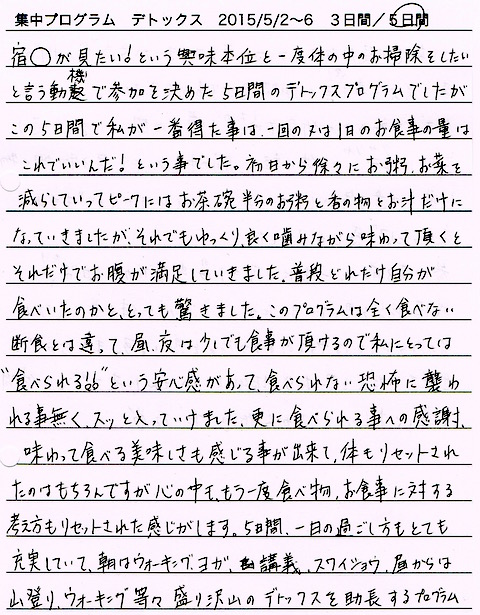 集中プログラム デトックス 2015/5/2〜6 3日間／5日間
宿◯が見たい！という興味本位と一度体の中のお掃除をしたい
と言う動機で参加を決めた5日間のデトックスプログラムでしたが
この5日間で私が一番得た事は、一回の又は1日のお食事の量は
これでいいんだ！という事でした。初日から徐々にお粥、お菜を
減らしていってピークにはお茶碗半分のお粥と香の物とお汁だけに
なっていきましたが、それでもゆっくり、良く噛みながら味わって頂くと
それだけでお腹が満足していきました。普段どれだけ自分が
食べいたのかと、とっても驚きました。このプログラムは全く食べない
断食とは違って、昼、夜は少しでも食事が頂けるので私にとっては
“食べられる!!”という安心感があって、食べられない恐怖に襲わ
れる事無く、スッと入っていけました。更に食べられる事への感謝、
味わって食べる美味しさも感じる事が出来て、体もリセットされ
たのはもちろんですが心の中も、もう一度食べ物、お食事に対する
考え方もリセットされた感じがします。5日間、一日の過ごし方もとても
充実していて、朝はウォーキング、ヨガ、講義、スワイショウ、昼からは
山登り、ウォーキング等々盛り沢山のデトックスを助長するプログラム